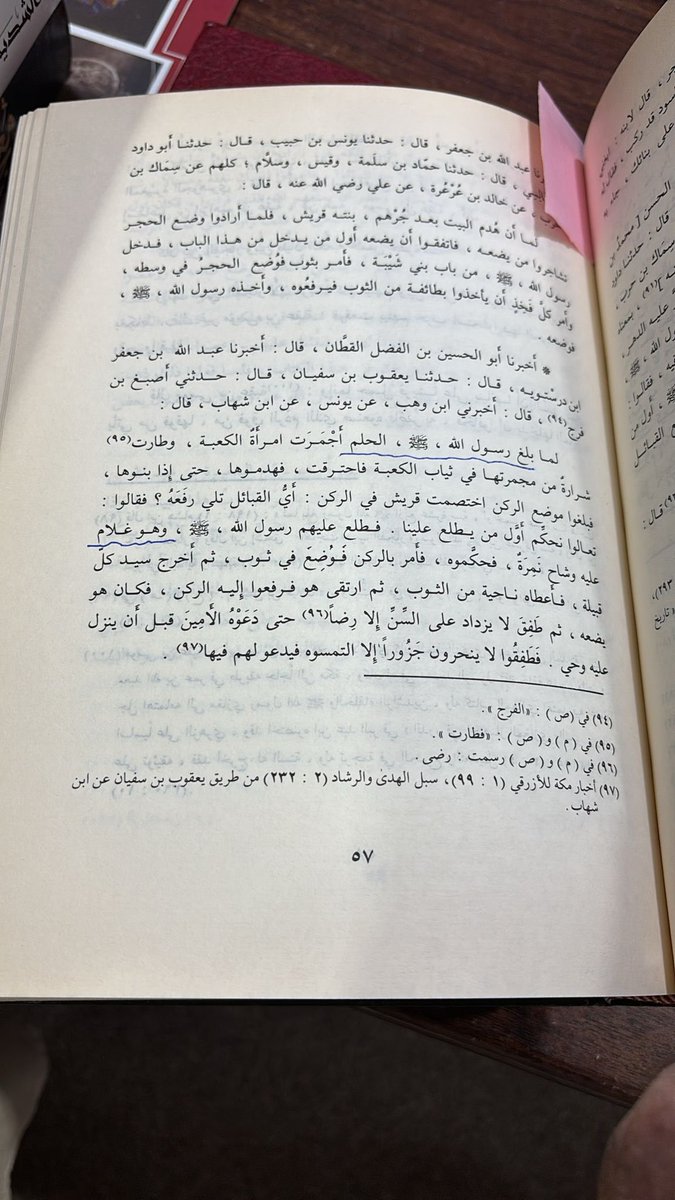 عبد الله بن جعفر ، قال : حدثنا يونس بن حبيب ، قال : حدثنا أبو داود
قال : حدثنا حمّاد بن سلَمة ، وقيس ، وسلّام ؛ كلهم عن سِماك بن
عن خالد بن عُرْعُرة ، عن علي رضي الله عنه ، قال :
لما أن هُدم البيت بعد جُرْهم ، بنته قريش ، فلما أرادوا وضع الحجر
تشاجروا من يضعه ، فاتفقوا أن يضعه أول من يدخل من هذا الباب ، فدخل
رسول الله ، ﷺ ، من باب بني شَيْبَة ، فأمر بثوب فوُضع الحجرُ في وسطه ،
وأمر كلَّ فَخِذٍ أن يأخذوا بطائفة من الثوب فيرفعُوه ، وأخذه رسول الله ، ﷺ ،
فوضعه .
* أخبرنا أبو الحسين بن الفضل القطّان ، قال : أخبرنا عبد الله بن جعفر
ابن درستويه ، قال : حدثنا يعقوب بن سفيان ، قال : حدثني أصبغ بن
فرج (٩٤) ، قال : أخبرني ابن وهب ، عن يونس ، عن ابن شهاب ، قال :
لما بلغ رسول الله ، ﷺ ، الحلم أَجْمَرَت امرأةٌ الكعبة ، وطارت (٩٥)
شرارةٌ من مجمرتها في ثياب الكعبة فاحترقت ، فهدموها ، حتى إذا بنوها ،
فبلغوا موضع الركن اختصمت قريش في الركن : أيُّ القبائل تلي رفعَهُ ؟ فقالوا :
تعالوا نحكِّم أوَّل من يطلع علينا . فطلع عليهم رسول الله ، ﷺ ، وهو غلام
عليه وشاح نَمِرَةٌ ، فحكَّموه ، فأمر بالركن فَوُضِعَ في ثوب ، ثم أخرج سيد كلّ
قبيلة ، فأعطاه ناحية من الثوب ، ثم ارتقى هو فرفعوا إليه الركن ، فكان هو
يضعه ، ثم طَفِقَ لا يزداد على السِّنِّ إلا رِضاً (٩٦) حتى دَعَوْهُ الأَمِينَ قبل أن ينزل
عليه وحي . فَطَفِقُوا لا ينحرون جَزُوراً إلا التمسوه فيدعو لهم فيها (٩٧) .
(٩٤) في (ص) : «الفرج » .
(٩٥) في ( م ) و ( ص ) : «فطارت » .
(٩٦) في ( م ) و ( ص ) رسمت : رضى .
(٩٧) أخبار مكة للأزرقي (١ : ٩٩) ، سبل الهدى والرشاد (٢ : ٢٣٢) من طريق يعقوب بن سفيان عن ابن
شهاب .
٥٧